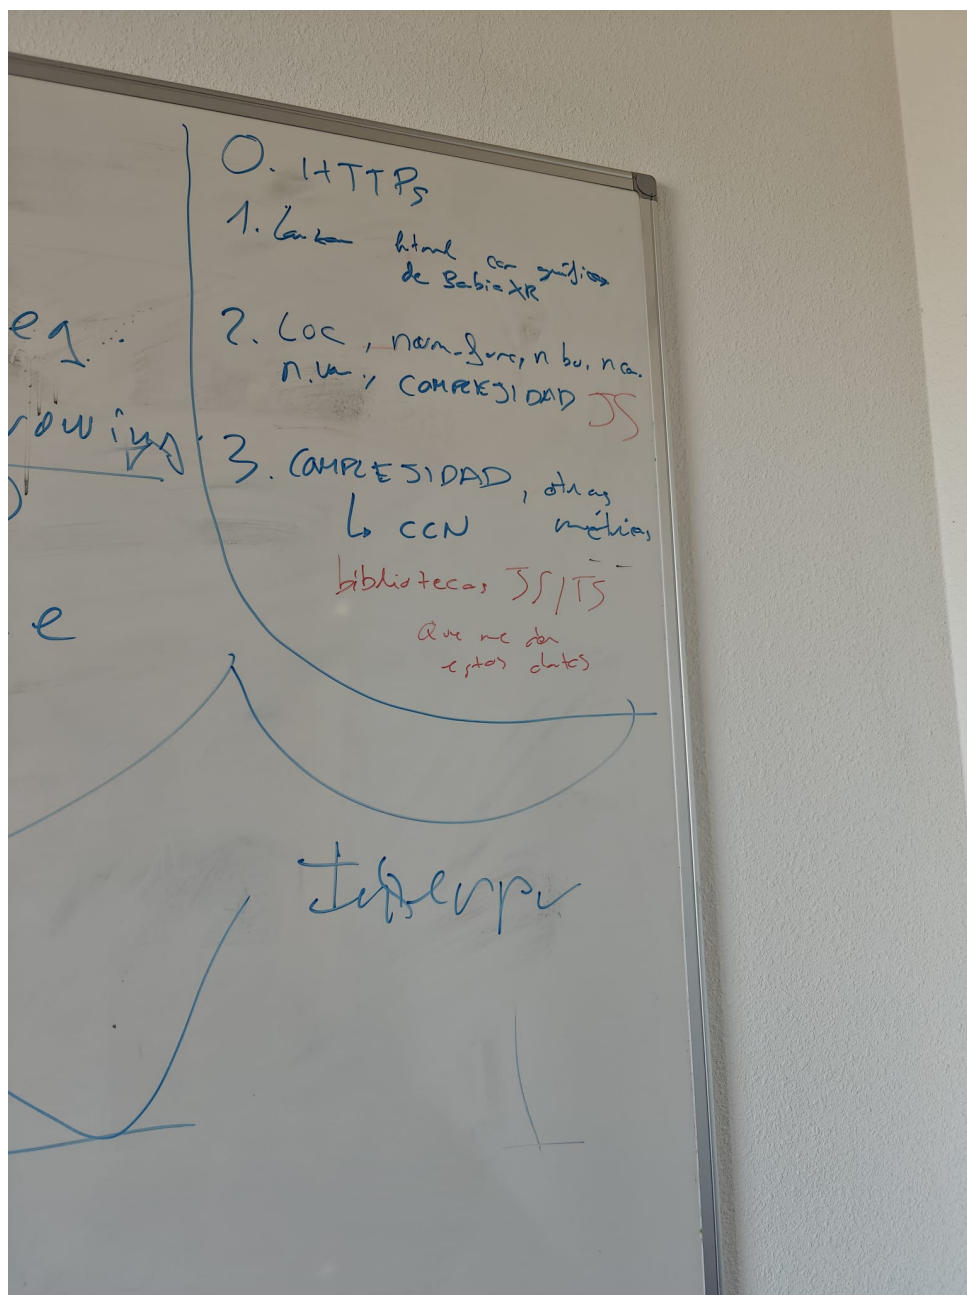 0. HTTPs
1. Lanzar html con gráficos
de BabiaXR
2. LOC, num_func, n bu, n ca.
n.va., COMPLEJIDAD JS
3. COMPLEJIDAD, otras
↳ CCN métricas
bibliotecas JS/TS
Que me dan
estos datos
eg...
rowing
e